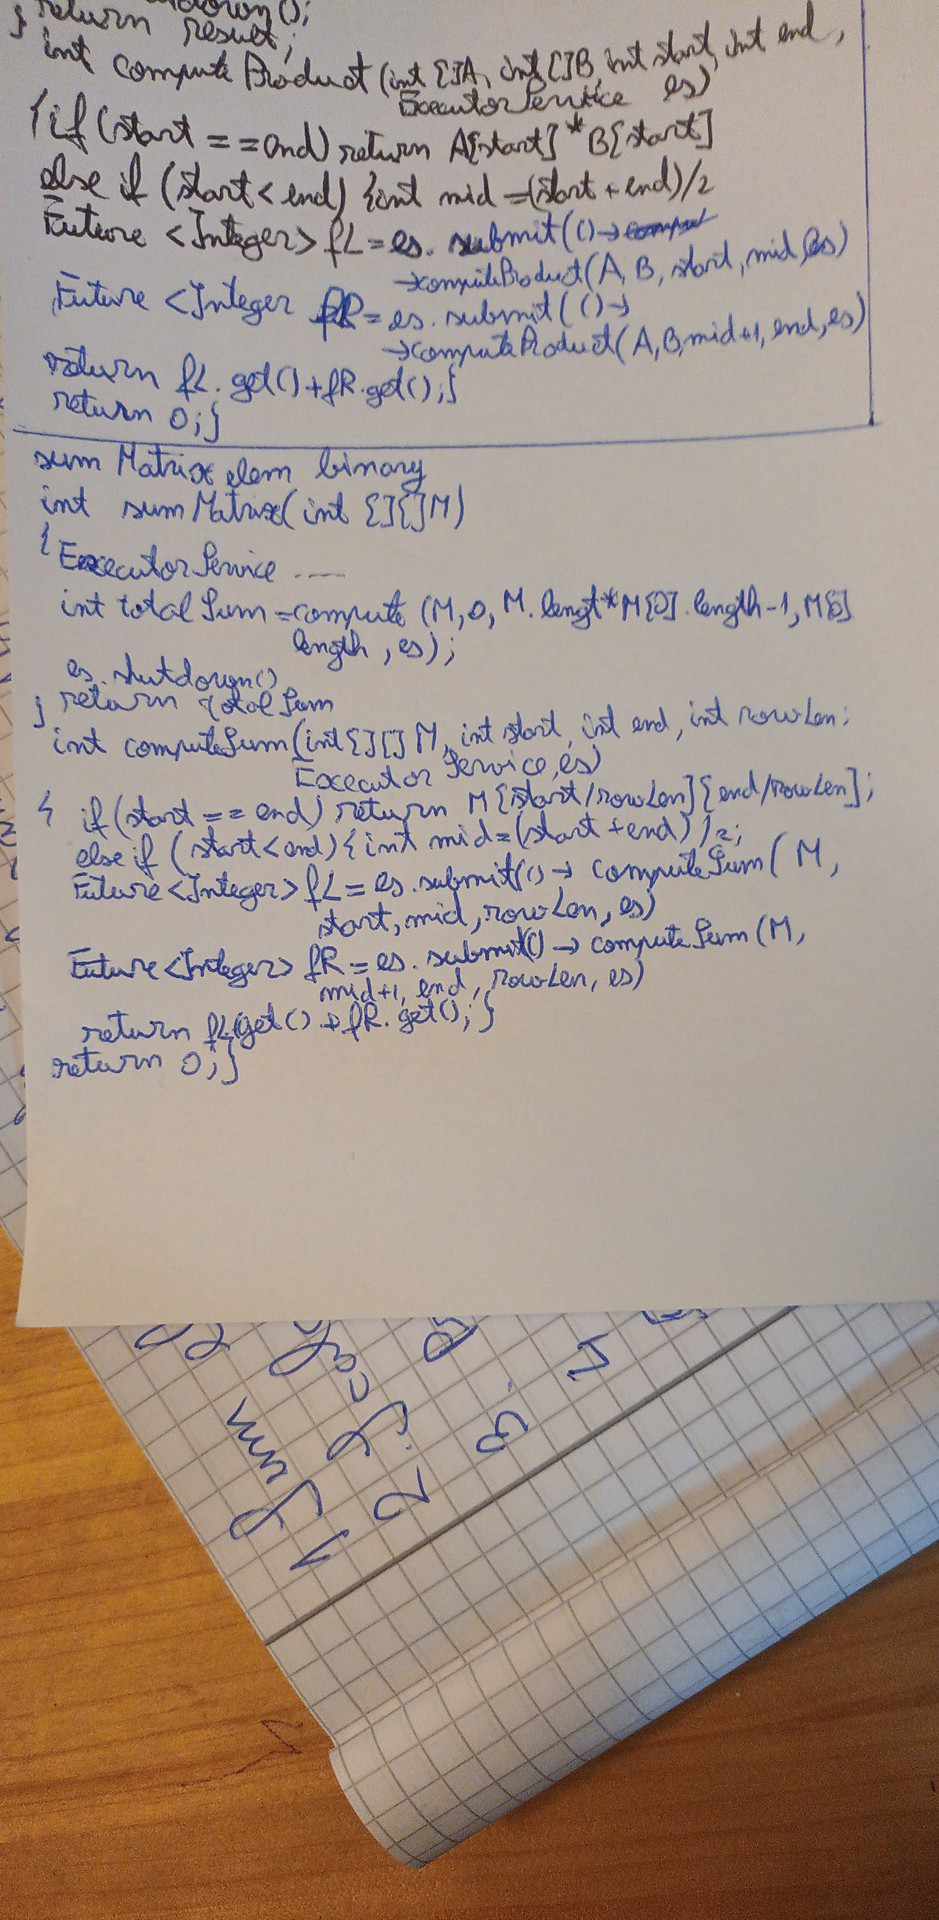 return result;
}
int computeProduct(int []A, int []B, int start, int end,
ExecutorService es)
{if(start == end) return A[start]*B[start]
else if (start < end) {int mid =(start + end)/2
Future <Integer> fL = es. submit(()→
→computeProduct(A, B, start, mid, es)
Future <Integer fR = es. submit(()→
→computeProduct(A, B, mid+1, end, es)
return fL. get()+fR.get();}
return 0;}
sum Matrix elem binary
int sumMatrix(int [][]M)
{ExecutorService ----
int totalSum = compute (M, 0, M. lengt*M[0]. length-1, M[0]
length, es);
es. shutdown()
} return totalSum
int computeSum(int[][] M, int start, int end, int rowLen;
Executor Service, es)
{ if(start == end) return M[start/rowLen][end/rowLen];
else if (start<end){int mid=(start+end)/2;
Future<Integer> fL = es.submit(()→ computeSum(M,
start, mid, rowLen, es)
Future<Integer> fR = es. submit(()→ computeSum(M,
mid+1, end, rowLen, es)
return fL.get()+fR. get();}
return 0;}
1
2
3
4